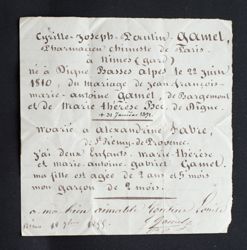 Cyrille-Joseph-Paulin Gamel,
Pharmacien chimiste de Paris.
à Nimes (gard)
né à Digne Basses alpes le 22 juin
1810, du mariage de Jean-françois-
marie-antoine Gamel, de Bargemont
et de Marie Thérèse Bec, de Digne.
Marié à alexandrine Fabre,
de St Remy-de-Provence.
j'ai deux Enfants. Marie-thérèse
et marie-antoine-gabriel Gamel.
ma fille est agée de 2 ans et 5 mois
mon garçon de 2 mois.
a mon bien aimable
Gamel